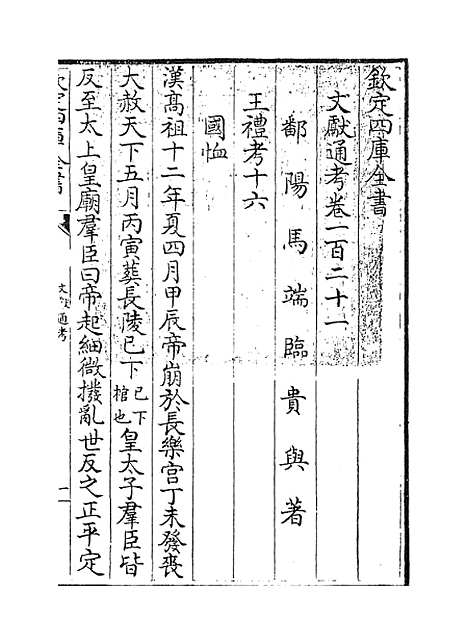 欽定四庫全書
文獻通考卷一百二十一
鄱陽馬端臨貴與著
王禮考十六
國恤
漢髙祖十二年夏四月甲辰帝崩於長樂宫丁未發喪
大赦天下五月丙寅葬長陵已下已下棺也皇太子羣臣皆
反至太上皇廟羣臣曰帝起細微撥亂世反之正平定
通考